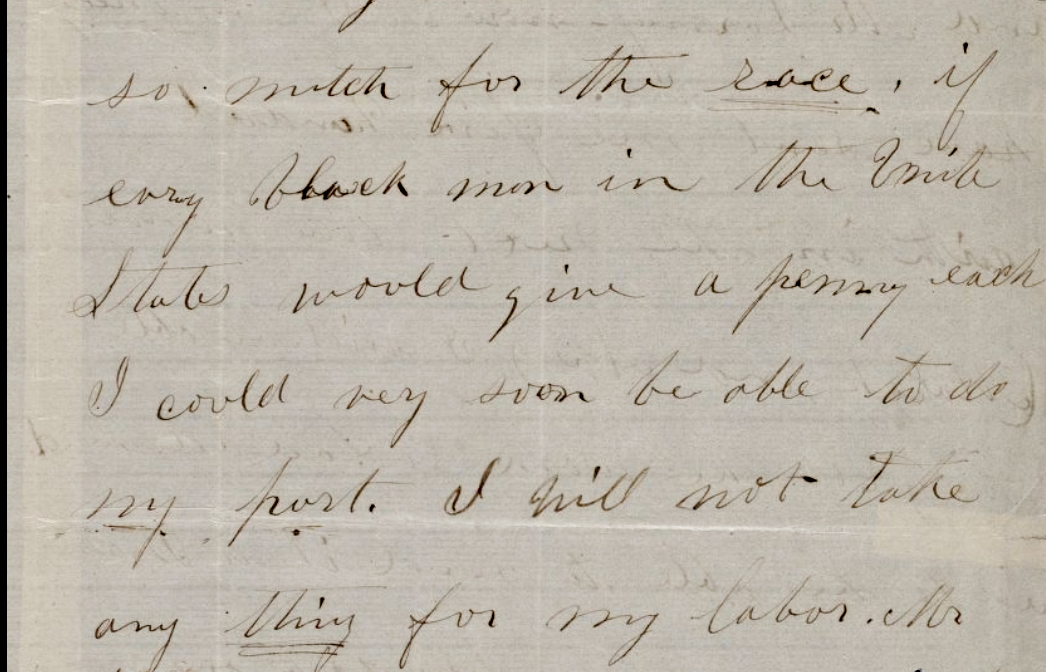 so mutch for the race, if
evry black man in the Unite
States would give a penny each
I could very soon be able to do
my part. I will not take
any thing for my labor. Mr